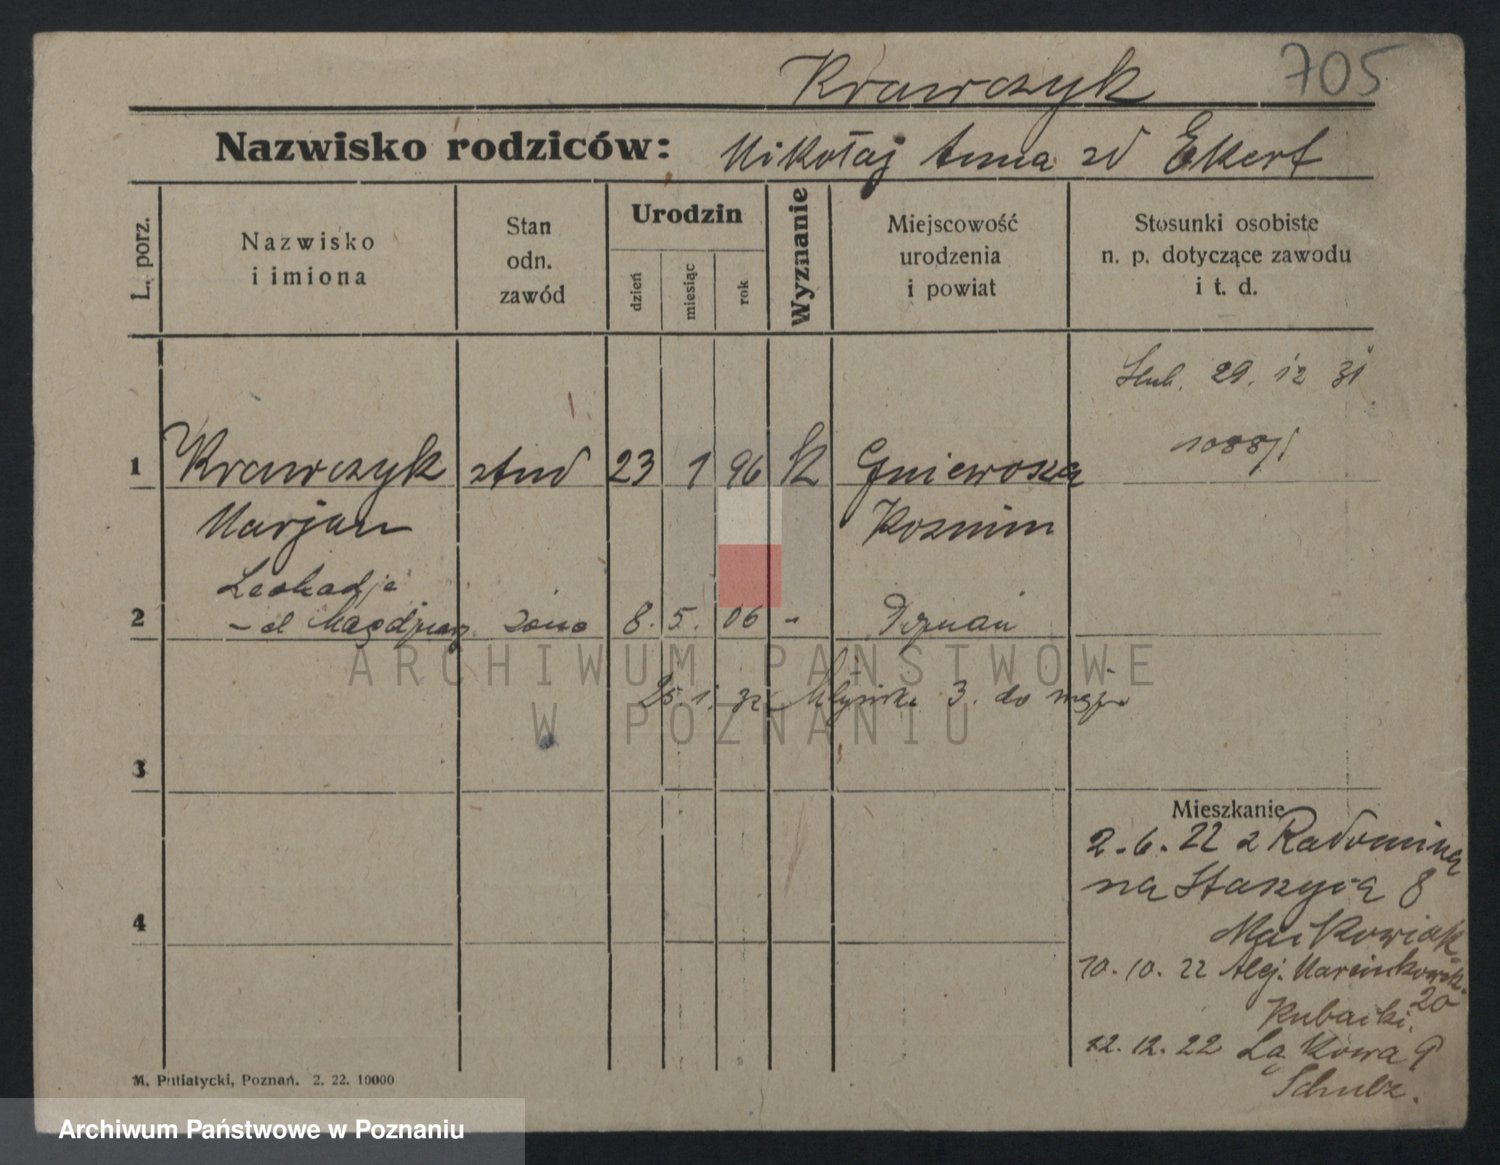 Krawczyk
705
Nazwisko rodziców: Mikołaj Anna zd Ekert
L. porz.
Nazwisko
i imiona
Stan
odn.
zawód
Urodzin
dzień
miesiąc
rok
Wyznanie
Miejscowość
urodzenia
i powiat
Stosunki osobiste
n. p. dotyczące zawodu
i t. d.
29. 12 31
1 Krawczyk stud 23 1 96 K
Marjan Kozmin
Leokadja
2 8. 5. 06 " Poznań
25. 1. 32 3. do męża
3
Mieszkanie
2. 6. 22 z
na Staszyca 8
4
10. 10. 22 Alej.
20
12. 12. 22 Łąkowa 9
Schulz.
M. Putiatycki, Poznań. 2. 22. 10000
ARCHIWUM PAŃSTWOWE
W POZNANIU
Archiwum Państwowe w Poznaniu